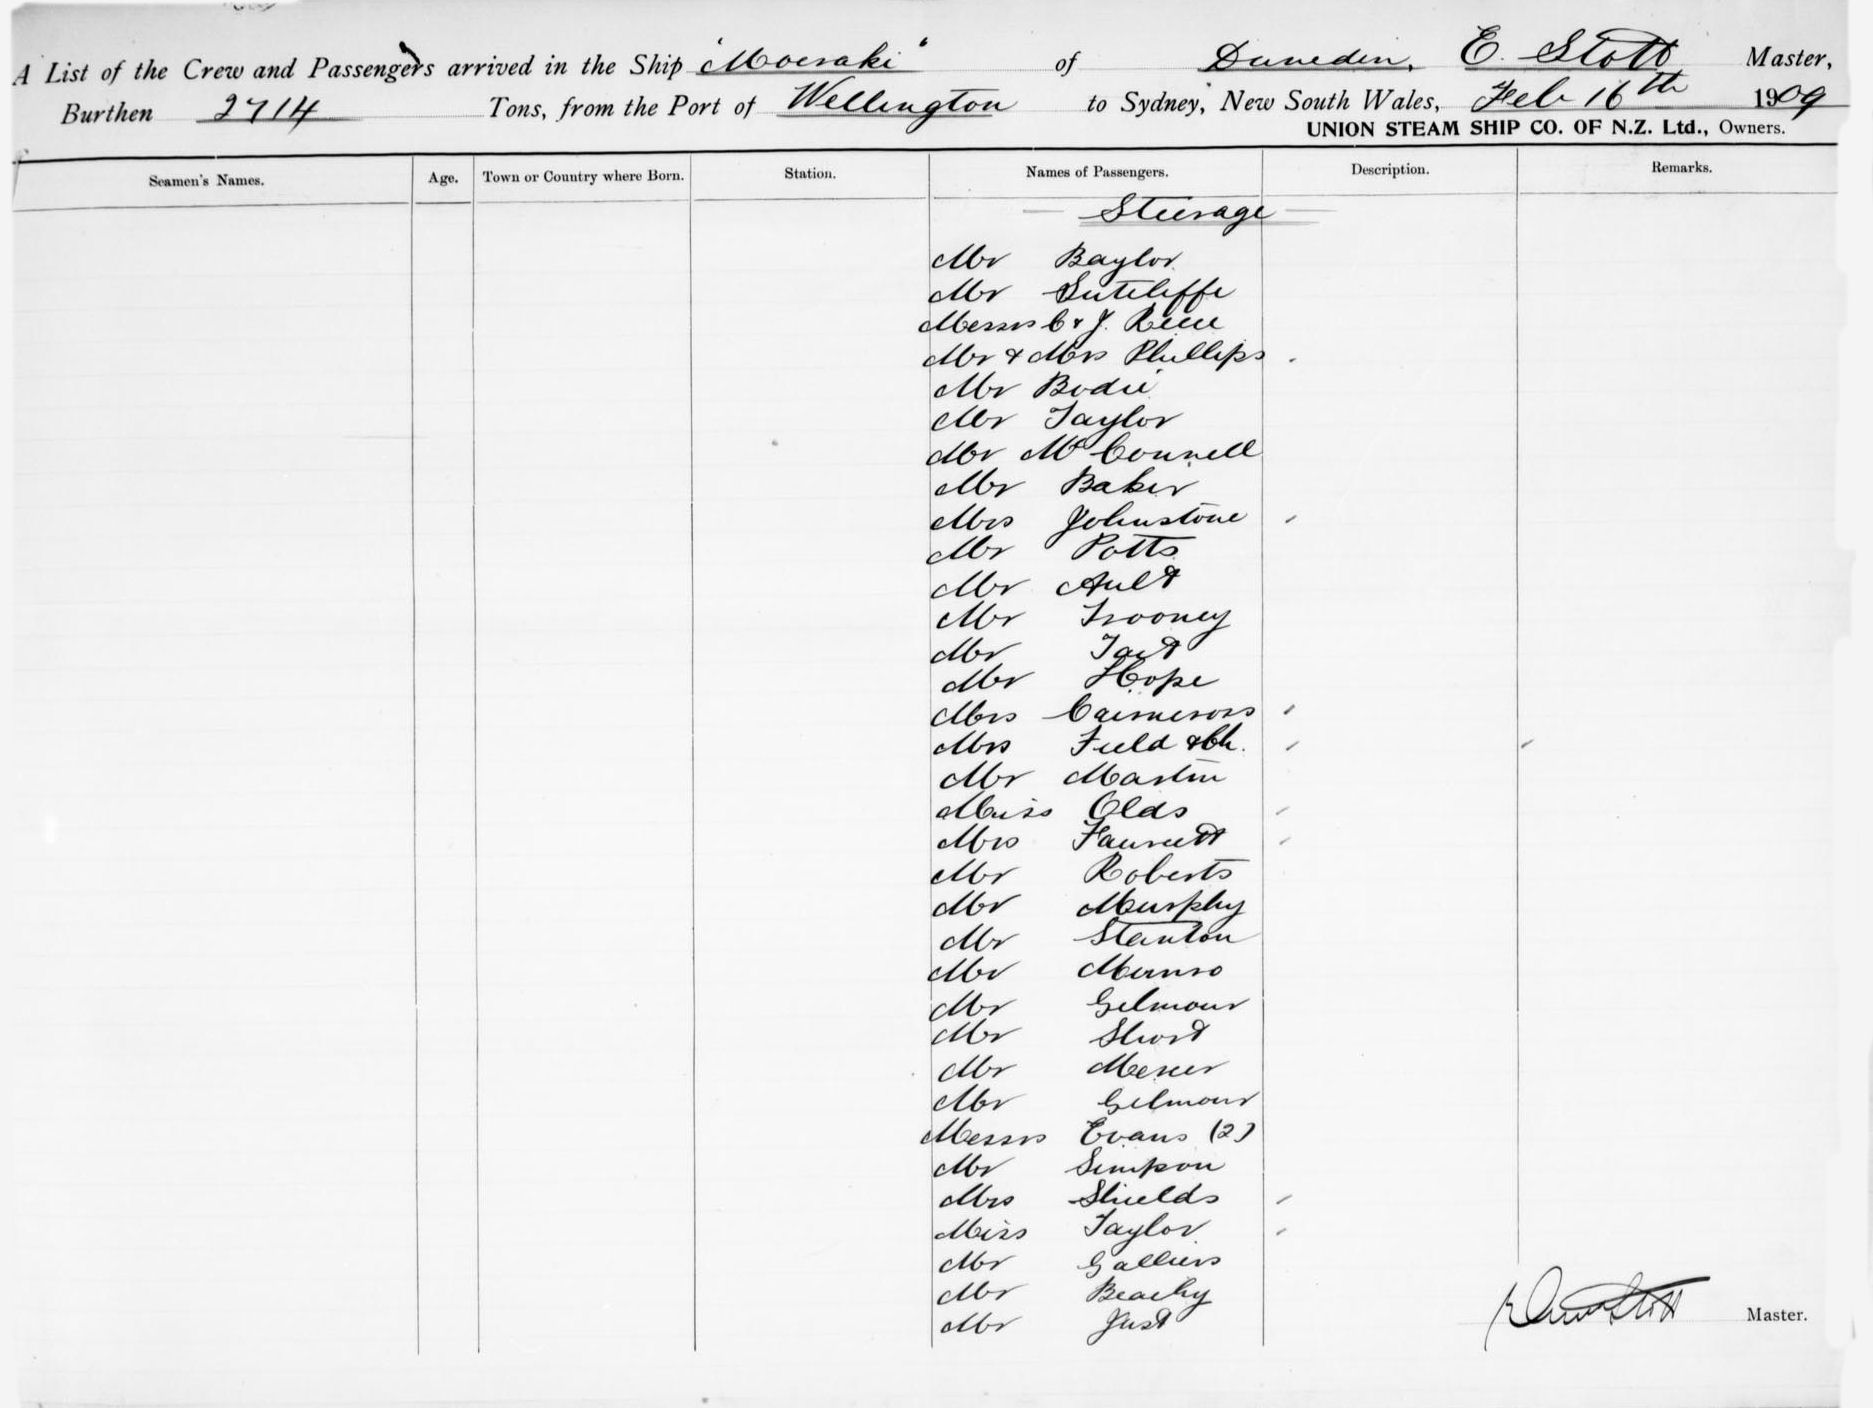 A List of the Crew and Passengers arrived in the Ship "Moeraki" of Dunedin, E. Stott Master,
Burthen 2714 Tons, from the Port of Wellington to Sydney, New South Wales, Feb 16th 1909
UNION STEAM SHIP CO. OF N.Z. Ltd., Owners.
Seamen's Names. Age. Town or Country where Born. Station. Names of Passengers. Description. Remarks.
Steerage
Mr Baylor
Mr Sutcliffe
Messrs C & J. Reece
Mr & Mrs Phillips
Mr Bodie
Mr Taylor
Mr McConnell
Mr Baker
Mrs Johnstone
Mr Potts
Mr Ault
Mr Trooney
Mr Tait
Mr Hope
Mrs Cairncross
Mrs Field & Ch.
Mr Martin
Miss Olds
Mrs Faucett
Mr Roberts
Mr Murphy
Mr Stanton
Mr Munro
Mr Gilmour
Mr Short
Mr
Mr Gilmour
Messrs Evans (2)
Mr Simpson
Mrs Shields
Miss Taylor
Mr Galliers
Mr Beachy
Mr Just
Master.